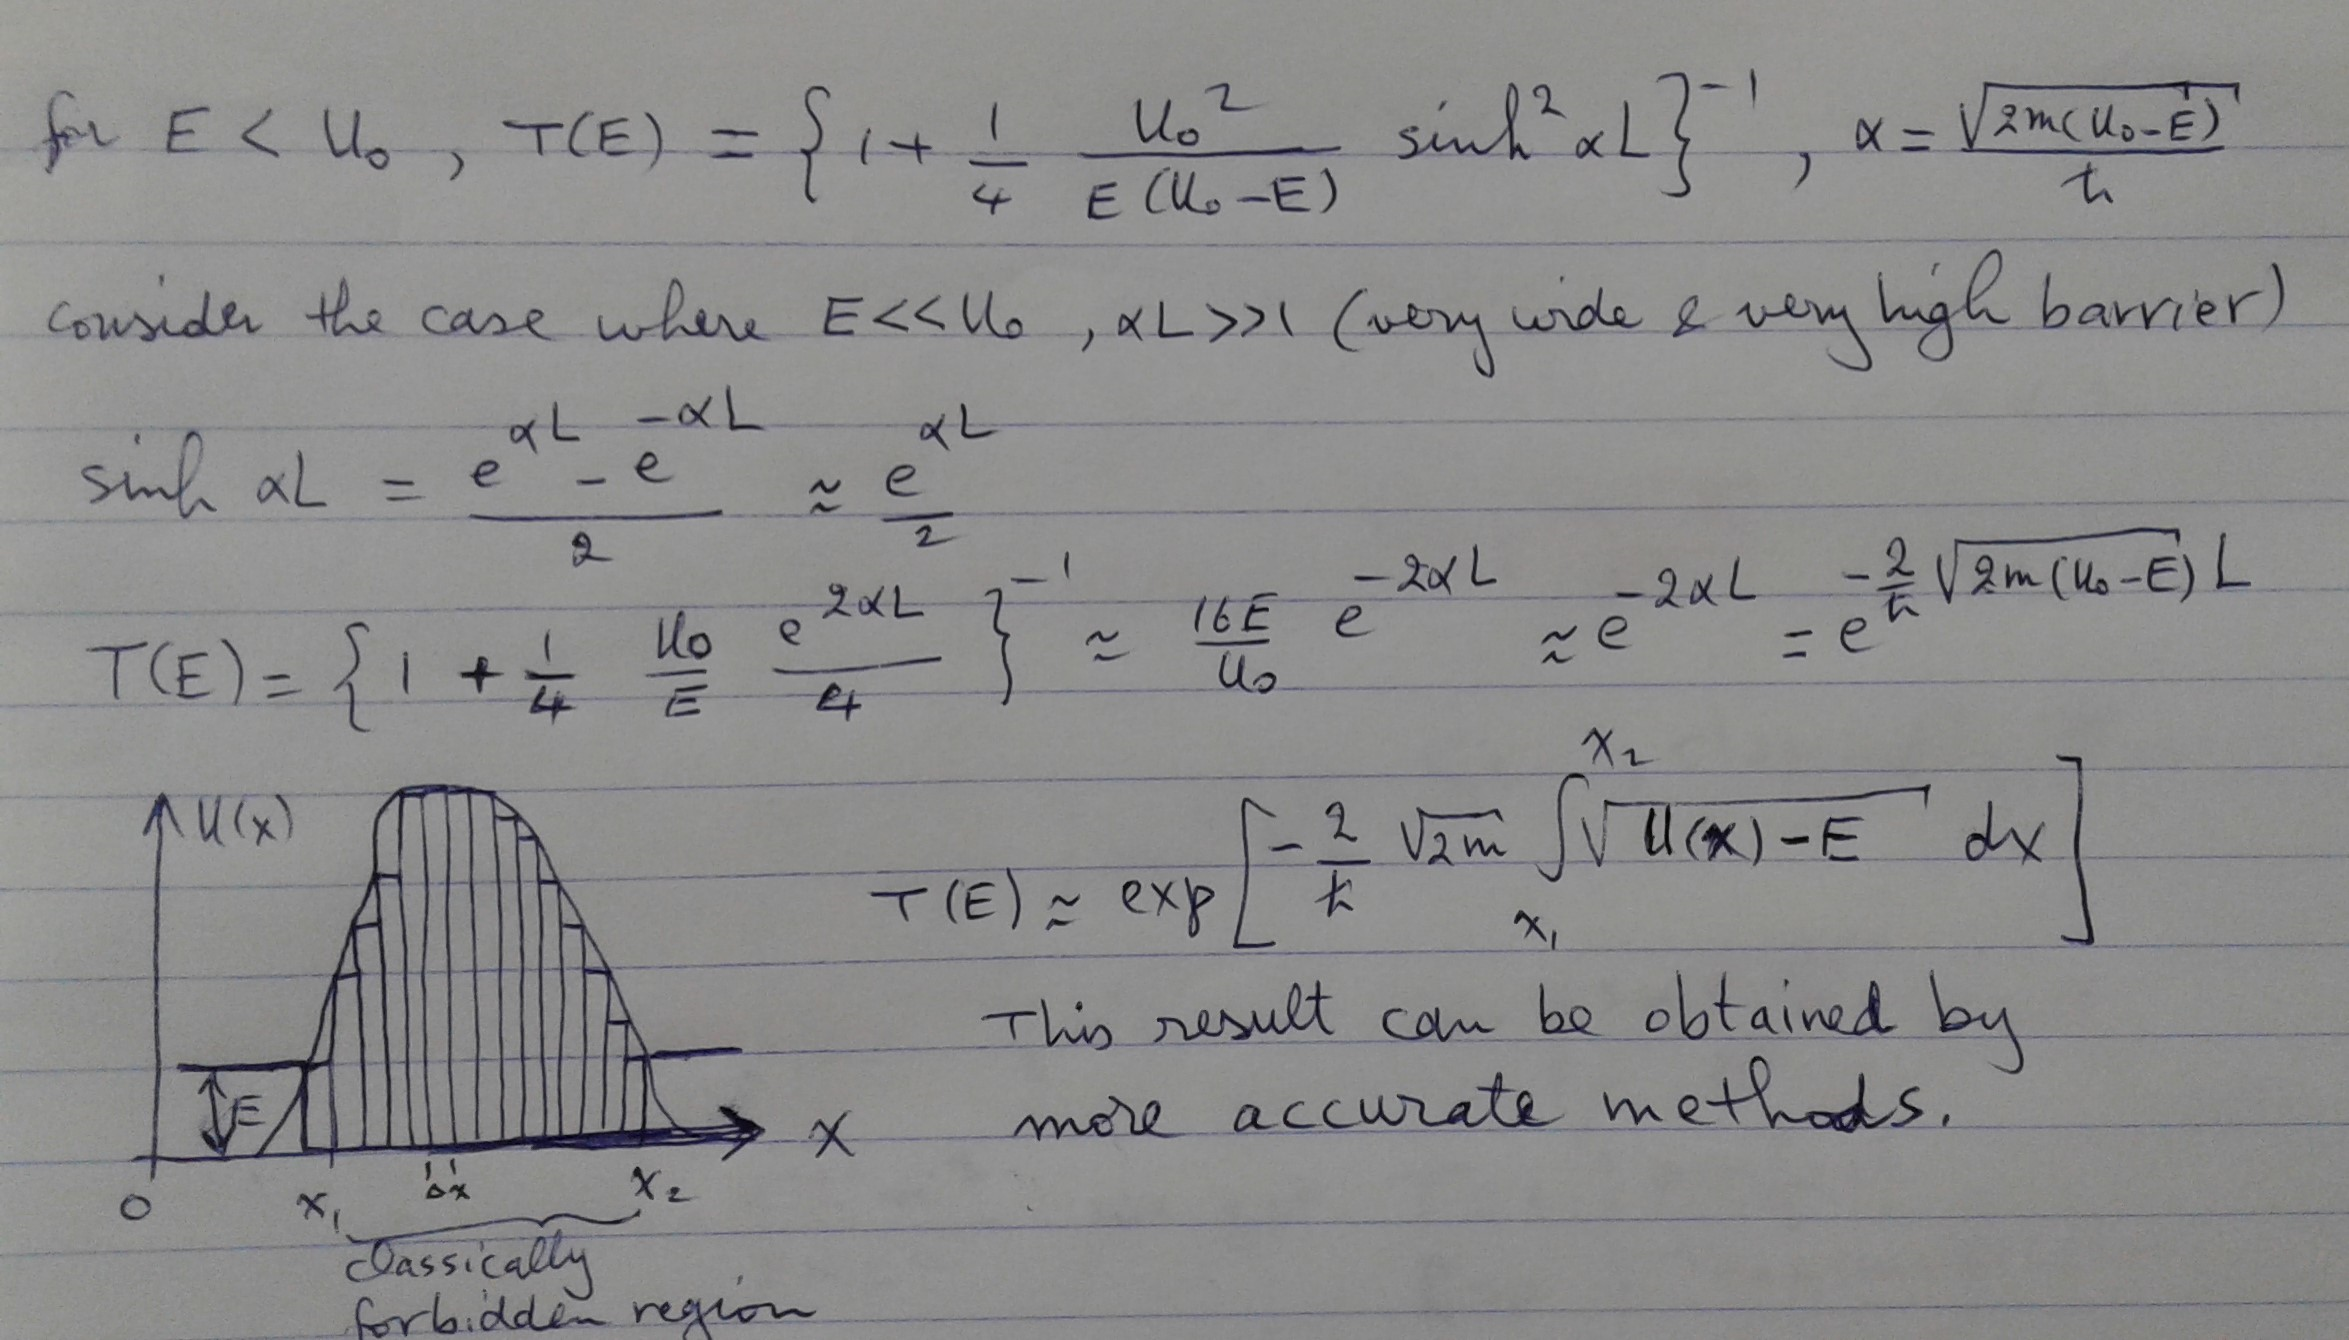 for E < U₀ , T(E) = {1 + 1/4 U₀²/E(U₀-E) sinh² αL}⁻¹ , α = √2m(U₀-E)/ħ
consider the case where E<<U₀ , αL>>1 (very wide & very high barrier)
sinh αL = (e^αL - e^-αL)/2 ≈ e^αL/2
T(E) = {1 + 1/4 U₀/E e^2αL/4}⁻¹ ≈ 16E/U₀ e^-2αL ≈ e^-2αL = e^-2/ħ √2m(U₀-E) L
U(x)
E
0
x₁
Δx
x₂
x
classically
forbidden region
T(E) ≈ exp[-2/ħ √2m ∫_x₁^x₂ √U(x)-E dx]
This result can be obtained by
more accurate methods.